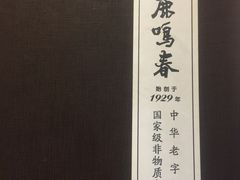 鹿鸣春
始创于
1929年
中华老字
国家级非物质